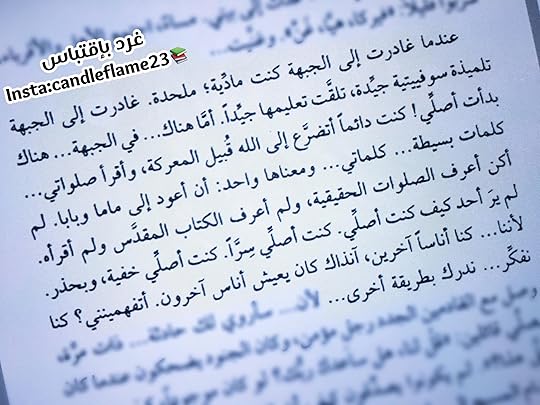 غرد بإقتباس
Insta:candleflame23
عندما غادرت إلى الجبهة كنت مادِّية؛ ملحدة. غادرت إلى الجبهة
تلميذة سوفييتية جيِّدة، تلقَّت تعليمها جيِّداً. أمَّا هناك... في الجبهة... هناك
بدأت أصلِّي! كنت دائماً أتضرَّع إلى الله قُبيل المعركة، وأقرأ صلواتي...
كلمات بسيطة... كلماتي... ومعناها واحد: أن أعود إلى ماما وبابا. لم
أكن أعرف الصلوات الحقيقية، ولم أعرف الكتاب المقدَّس ولم أقرأه.
لم يرَ أحد كيف كنت أصلِّي. كنت أصلِّي سِرَّاً. كنت أصلِّي خفية، وبحذر.
لأننا... كنا أناساً آخرين، آنذاك كان يعيش أناس آخرون. أتفهمينني؟ كنا
نفكِّر... ندرك بطريقة أخرى... لأن... سأروي لك حادثة... ذات مرَّة،
وصل مع القادمين الجدد رجل مؤمن، وكان الجنود يضحكون عندما كان